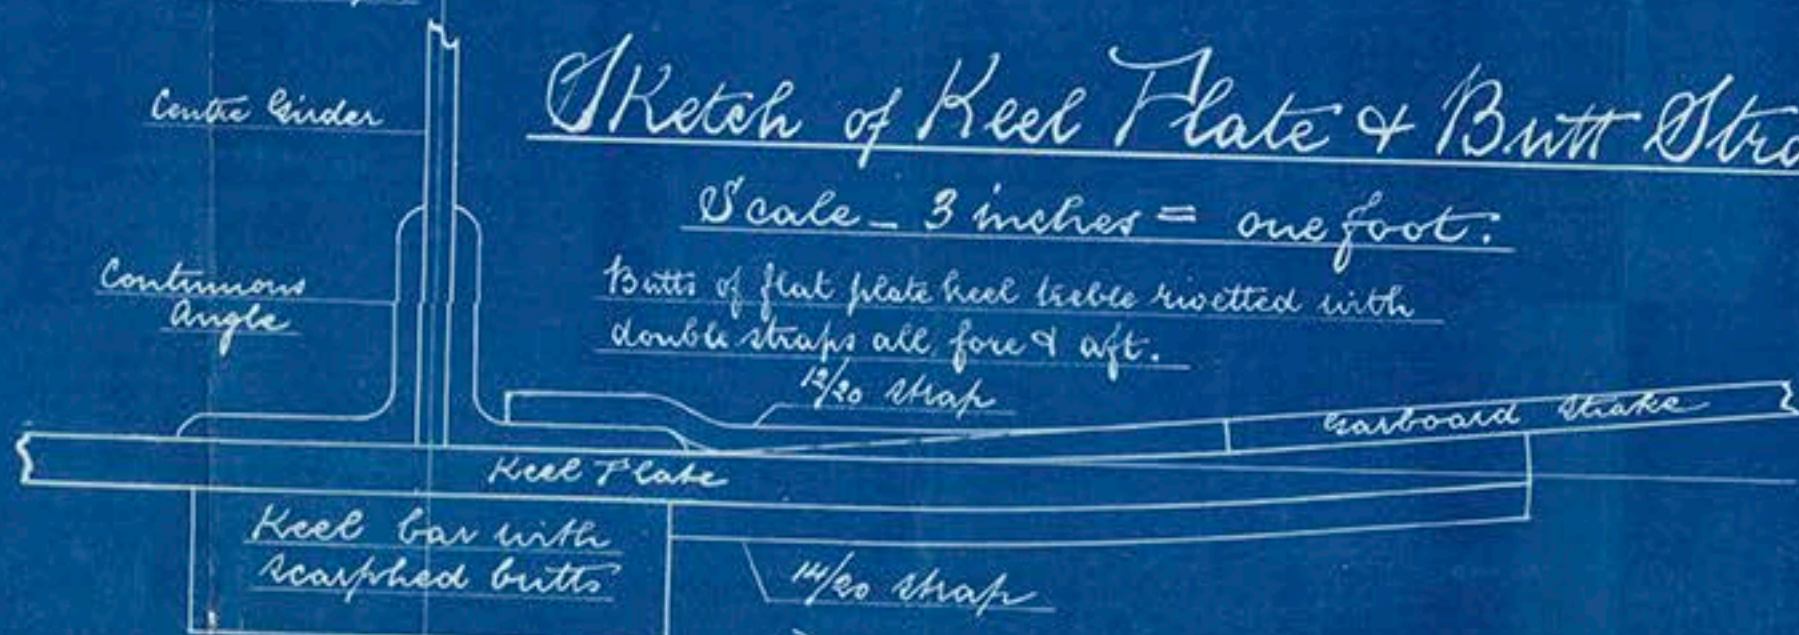 Sketch of Keel Plate & Butt Stra
Scale - 3 inches = one foot.
Centre Girder
Continuous
Angle
Butts of flat plate keel treble rivetted with
double straps all fore & aft.
12/20 strap
Garboard Strake
Keel Plate
Keel bar with
scarphed butts
14/20 strap